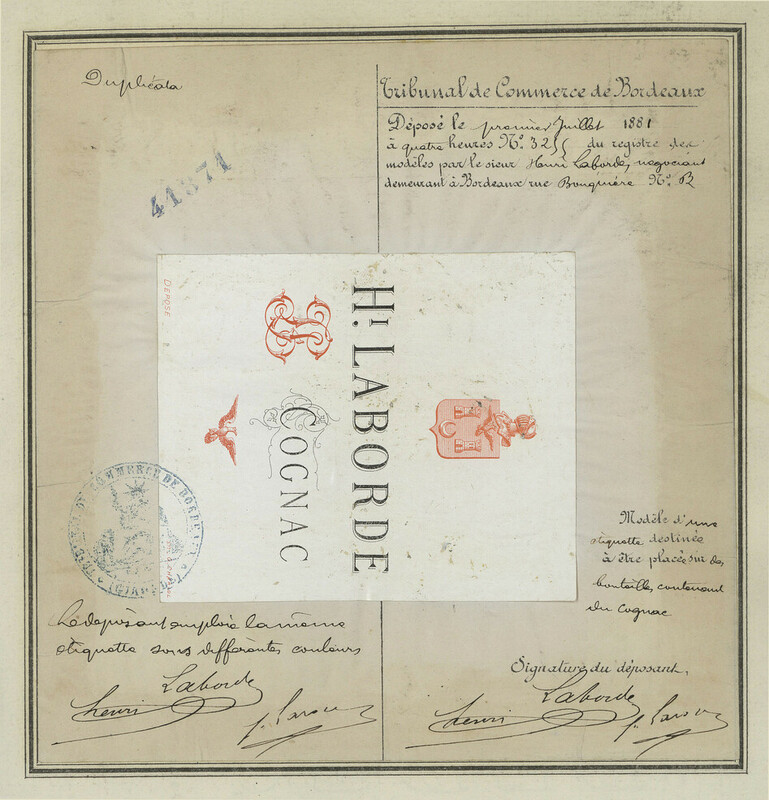 Duplicata
41371
Tribunal de Commerce de Bordeaux
Déposé le premier Juillet 1881
à quatre heures No. 3255 du registre des
modèles par le sieur Henri Laborde, négociant
demeurant à Bordeaux rue Bouquière No.
DÉPOSÉ
HI LABORDE
COGNAC
TRIBUNAL DE COMMERCE DE BORDEAUX
(GIRONDE)
Modèle d'une
étiquette destinée
à être placée sur des
bouteilles contenant
du cognac
Le déposant emploie la même
étiquette sous différentes couleurs
Henri Laborde
Signature du déposant,
Henri Laborde